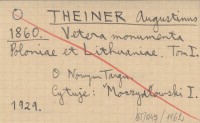 O THEINER Augustinus
1860. Vetera monumenta
Poloniae et Lithuaniae. Tom I.
O Nowym Targu.
Cytuje: "Moszydłowski I.
1929.